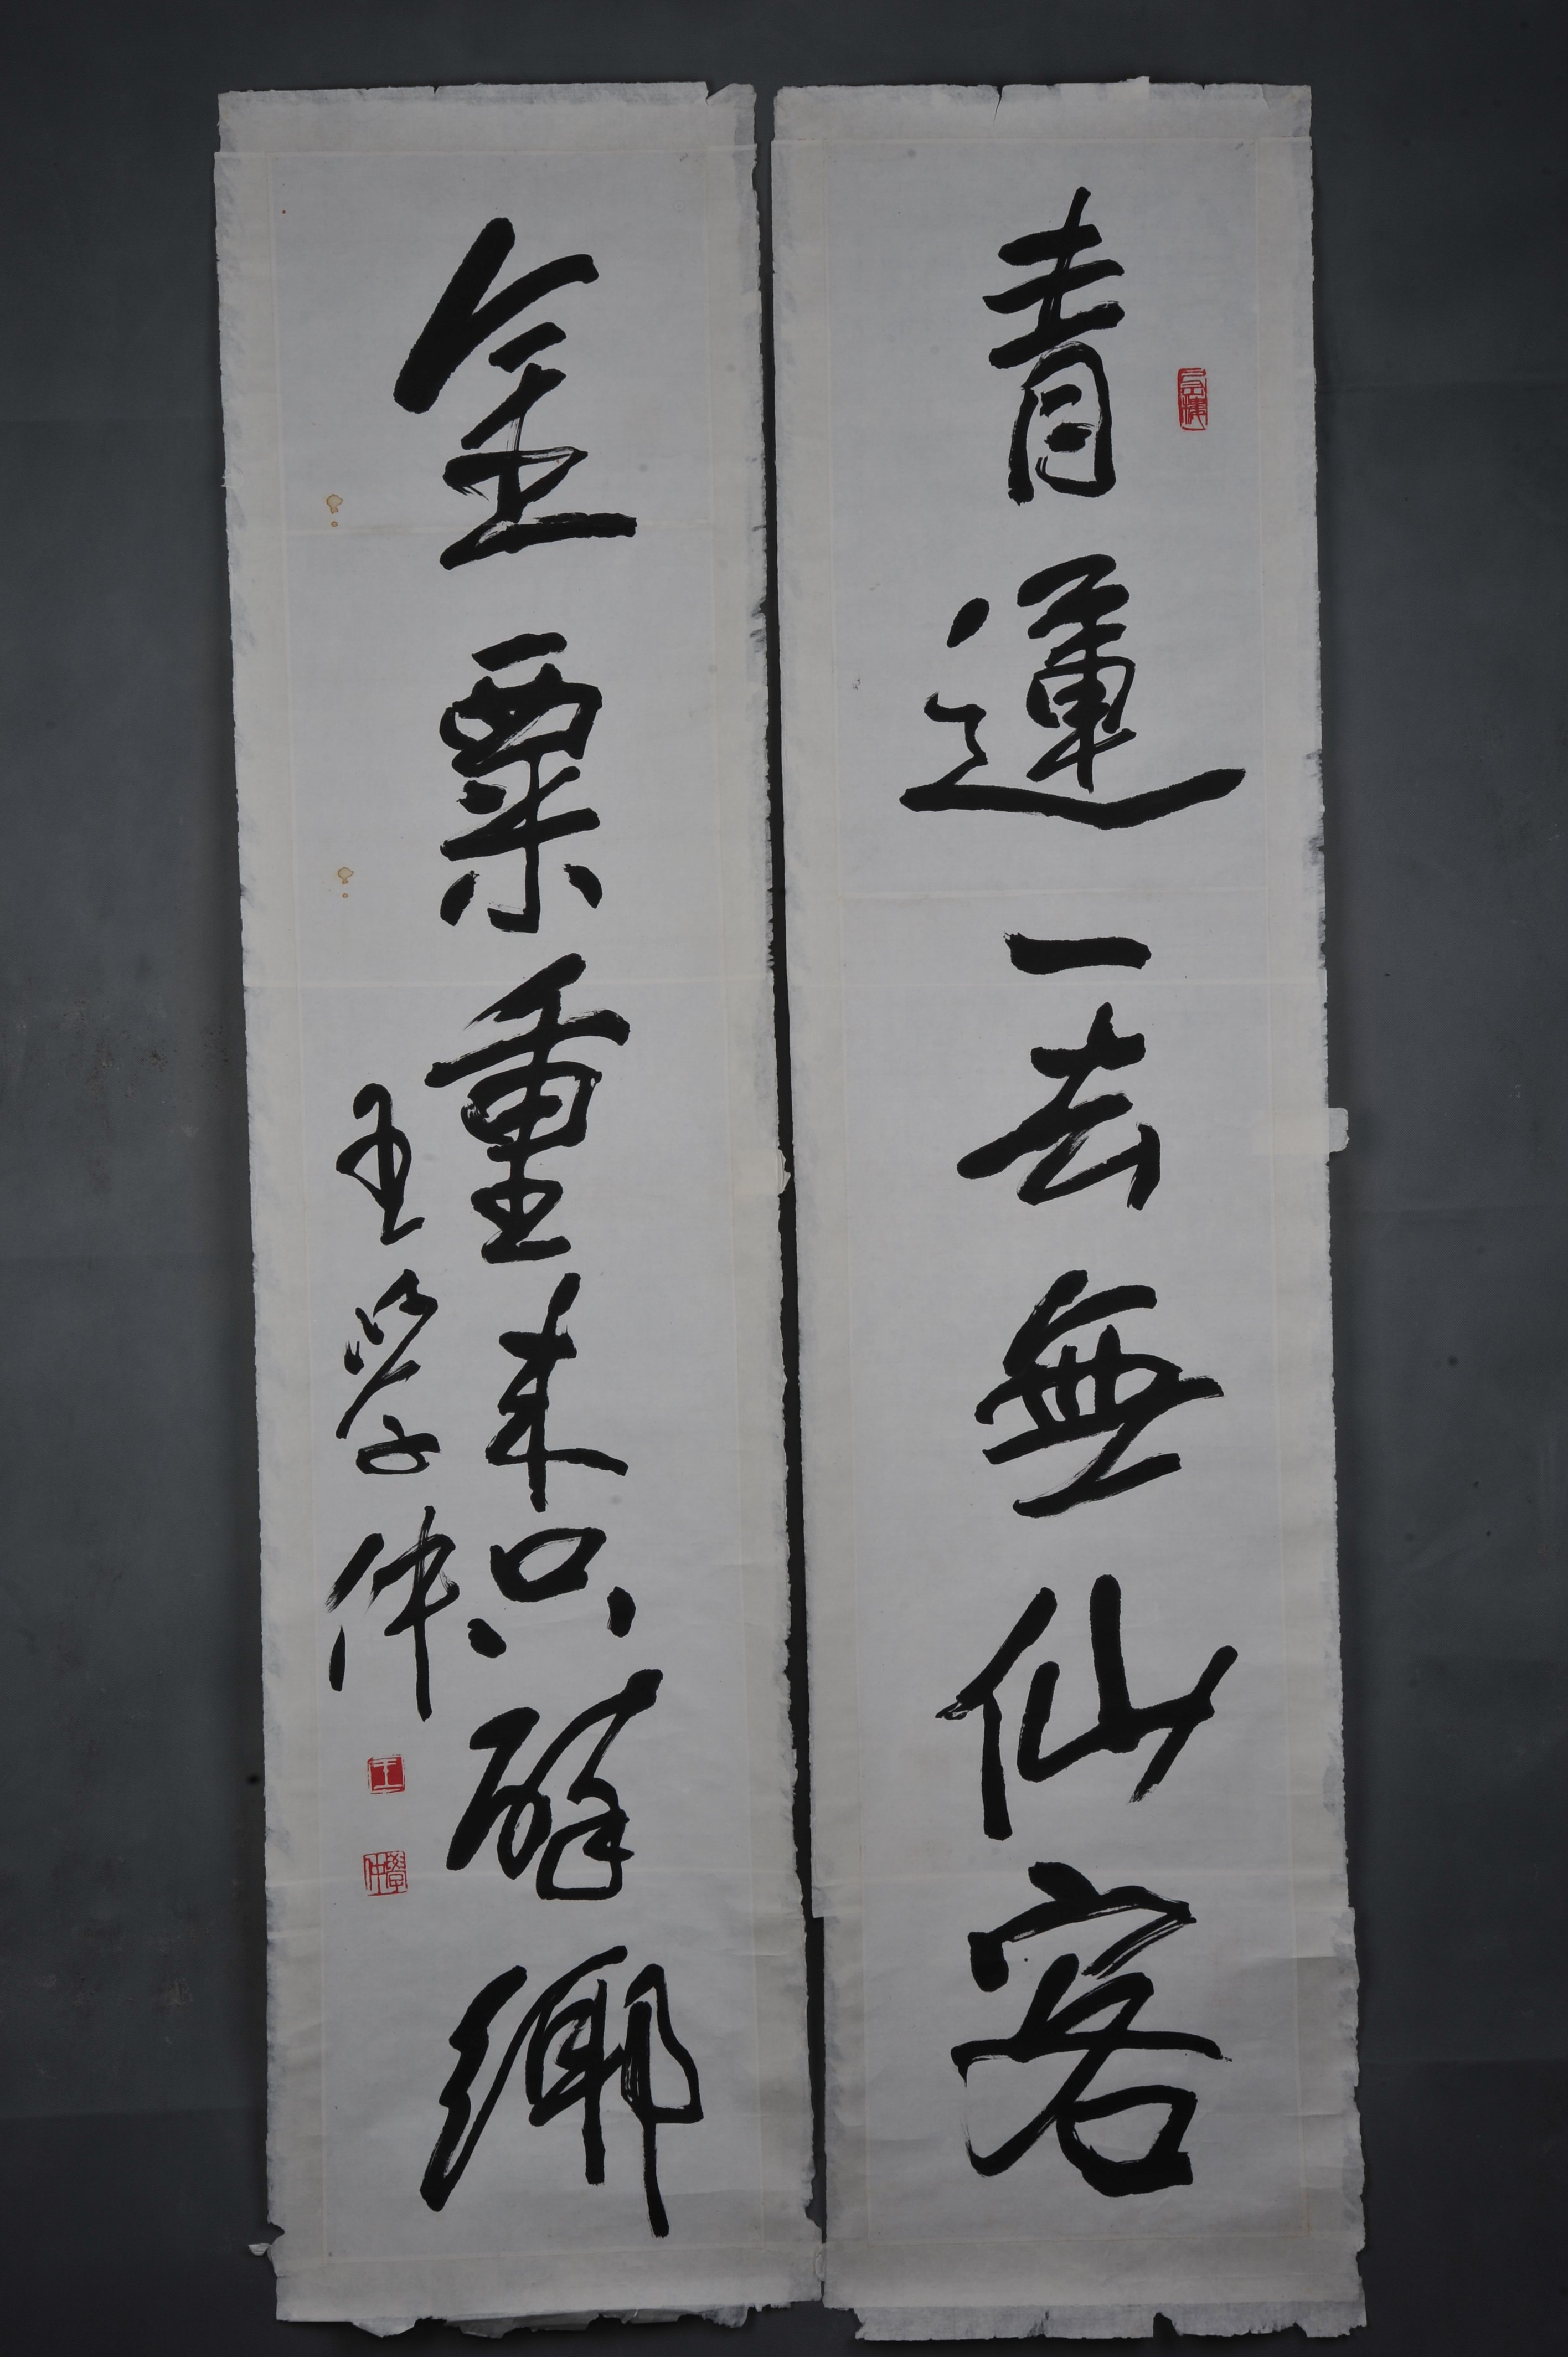 青蓮一去無仙客
金粟重来只醉鄉
王學仲
王
學仲